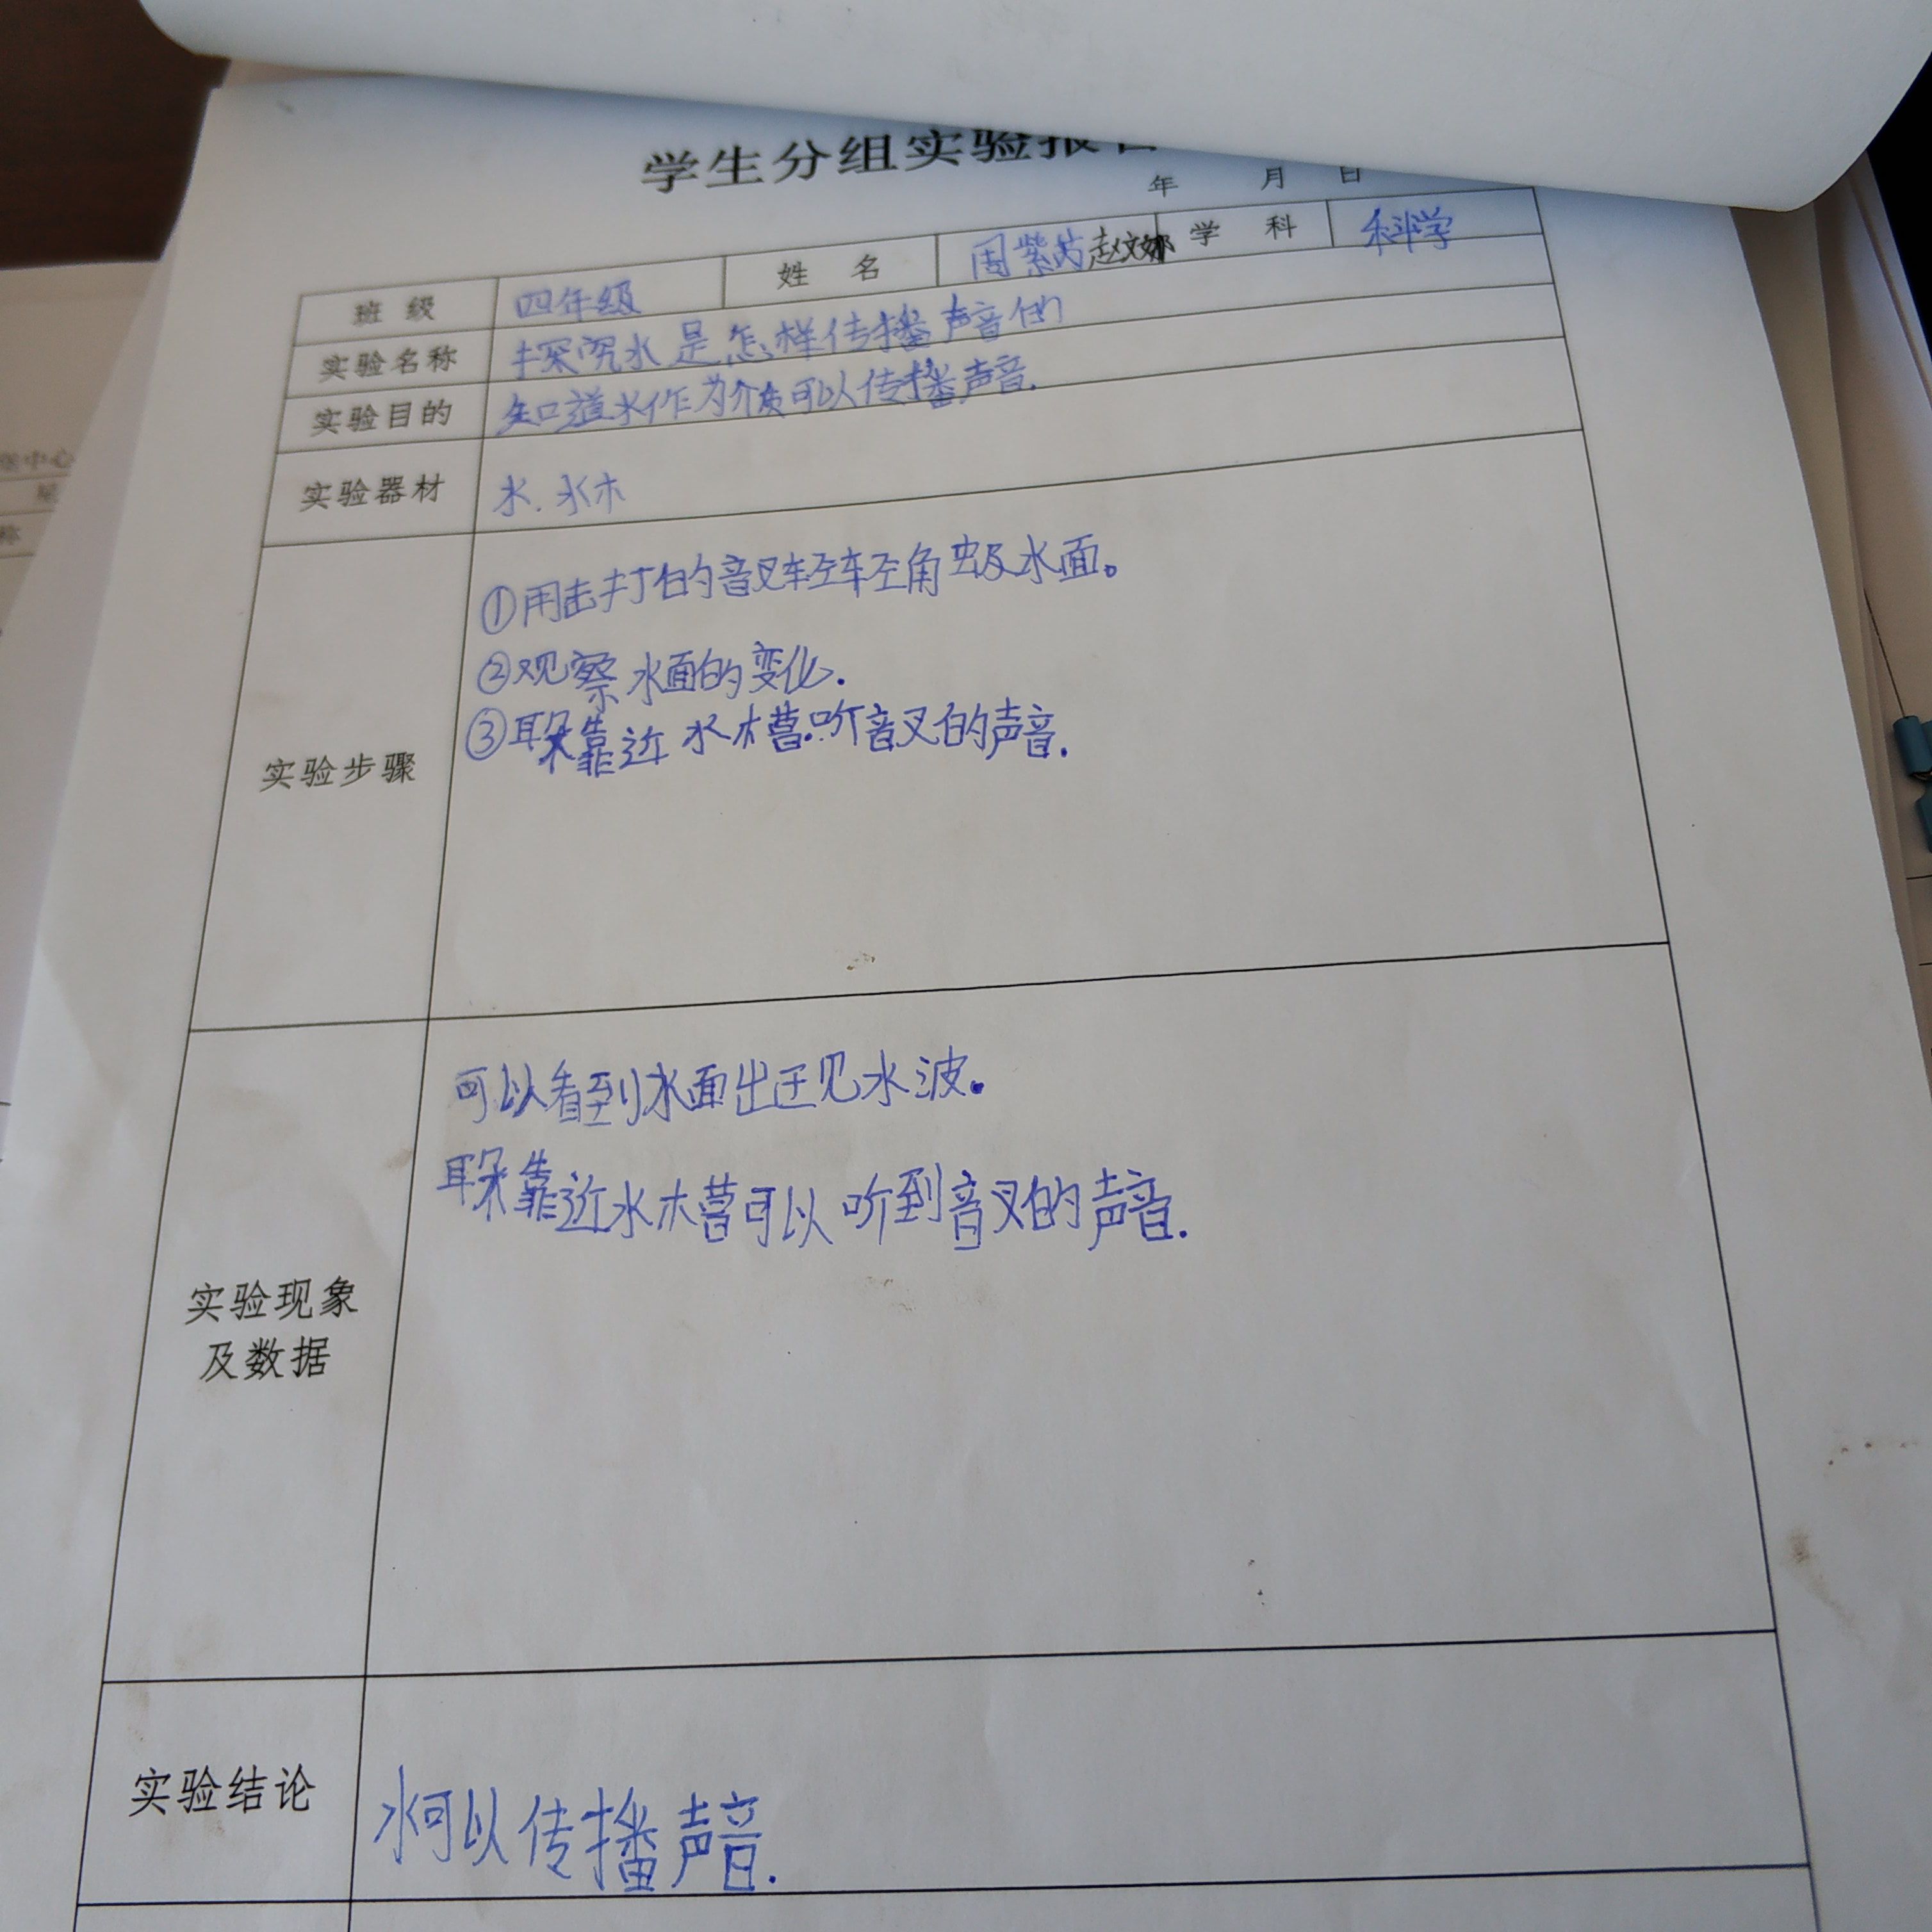 学生分组实验报
年 月 日
班 级 四年级 姓 名 周紫芮 赵文娜 学 科 科学
实验名称 探究水是怎样传播声音的
实验目的 知道水作为介质可以传播声音.
实验器材 水.水木
①用击打的音叉轻轻触及水面。
②观察水面的变化.
③耳朵靠近水槽.听音叉的声音.
实验步骤
可以看到水面出现水波。
耳朵靠近水槽可以听到音叉的声音.
实验现象
及数据
实验结论 水可以传播声音.